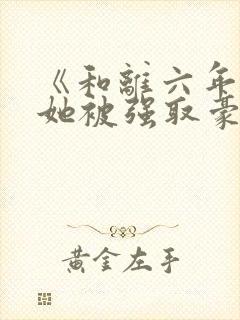 《和離六年
她被强取豪
黄金左手